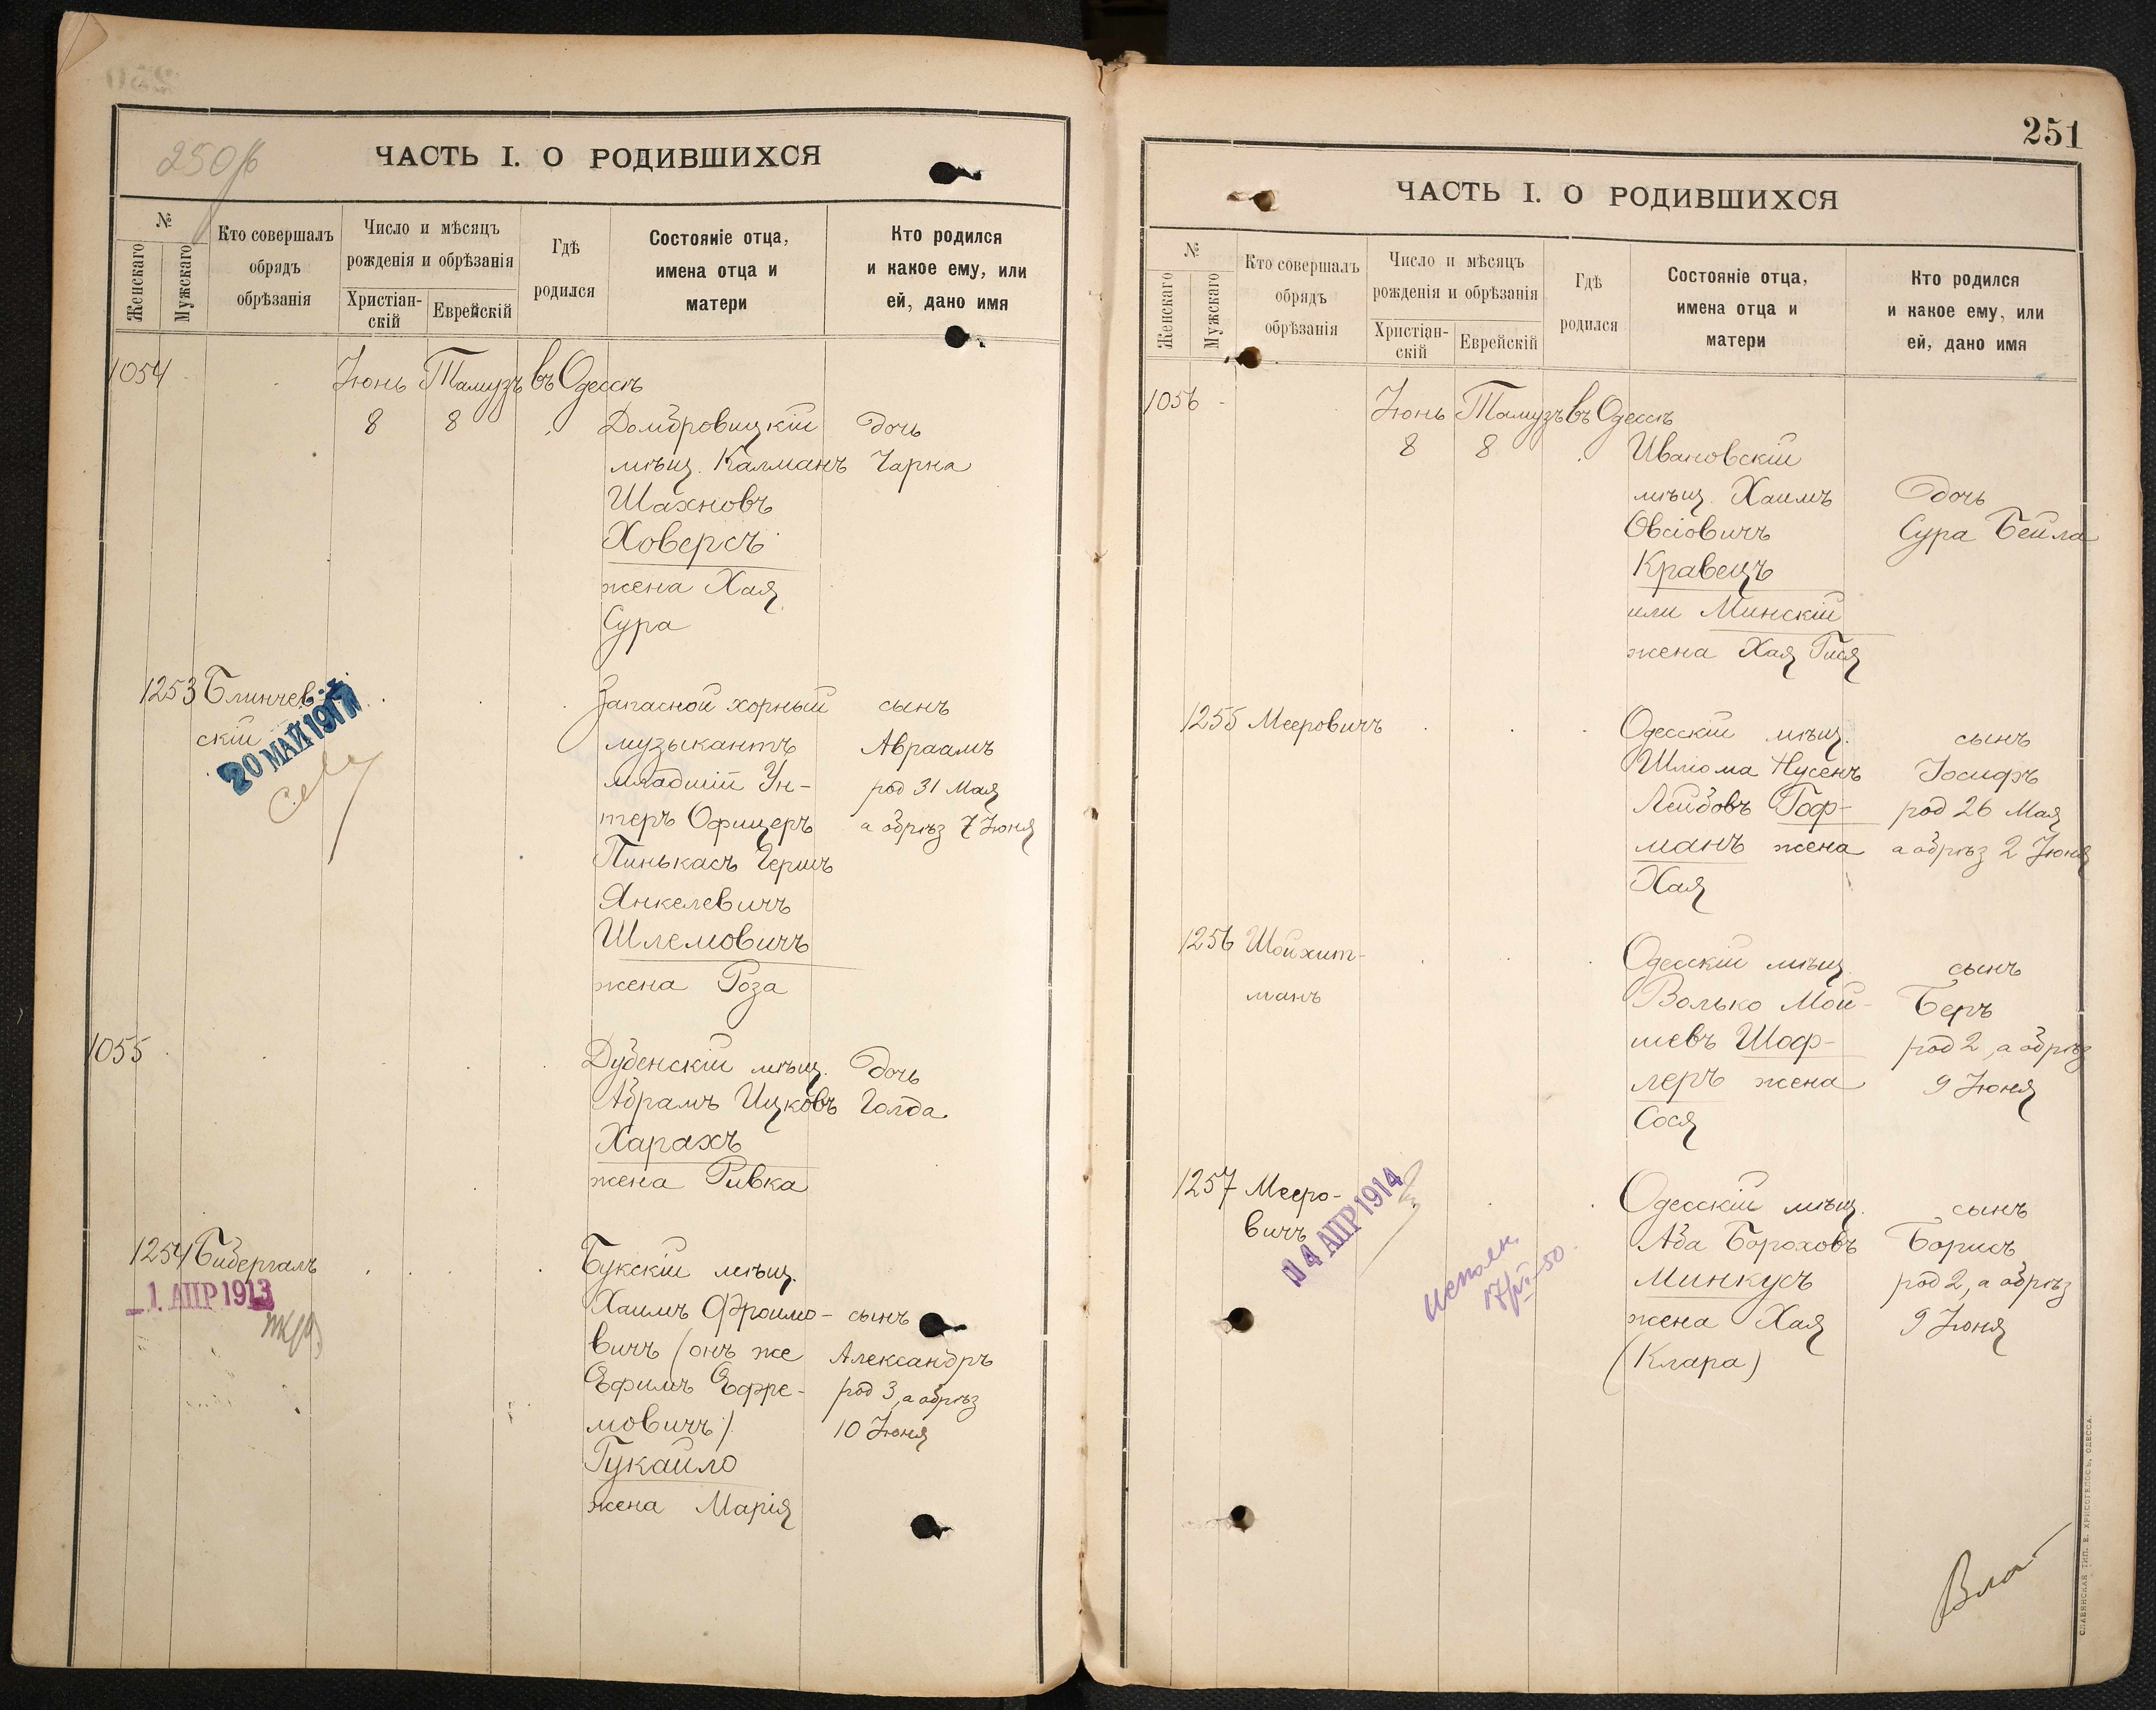 250
ЧАСТЬ I. О РОДИВШИХСЯ
№
Женскаго
Мужскаго
Кто совершалъ
обрядъ
обрѣзанія
Число и мѣсяцъ
рожденія и обрѣзанія
Христіан-
скій
Еврейскій
Гдѣ
родился
Состояніе отца,
имена отца и
матери
Кто родился
и какое ему, или
ей, дано имя
1054 Іюнь Тамузъ въ Одессѣ
8 8 Домбровицкій дочь
мѣщ. Калманъ Чарна
Шахновъ
Ховерсъ
жена Хая
Сура
1253 Блинчев-
скій
20 МАЙ 1917
Запасной хорный сынъ
музыкантъ Авраамъ
младшій Ун- род 31 Мая
теръ Офицеръ а обрѣз 7 Іюня
Пинькасъ Гершъ
Янкелевичъ
Шлемовичъ
жена Роза
1055 Дубенскій мѣщ. дочь
Абрамъ Ицковъ Голда
Харахъ
жена Ривка
1254 Бидергалъ
1. АПР 1913
Букскій мѣщ.
Хаимъ Фроимо- сынъ
вичъ (онъ же Александръ
Ефимъ Ефре- род 3, а обрѣз
мовичъ) 10 Іюня
Гукайло
жена Марія
251
ЧАСТЬ I. О РОДИВШИХСЯ
№
Женскаго
Мужскаго
Кто совершалъ
обрядъ
обрѣзанія
Число и мѣсяцъ
рожденія и обрѣзанія
Христіан-
скій
Еврейскій
Гдѣ
родился
Состояніе отца,
имена отца и
матери
Кто родился
и какое ему, или
ей, дано имя
1056 Іюнь Тамузъ въ Одессѣ
8 8 Ивановскій
мѣщ. Хаимъ дочь
Овсіовичъ Сура Бейла
Кравецъ
или Минскій
жена Хая Гися
1255 Мееровичъ Одесскій мѣщ. сынъ
Шліома Нусенъ Іосифъ
Лейбовъ Гоф- род 26 Мая
манъ жена а обрѣз 2 Іюня
Хая
1256 Шойхит-
манъ
Одесскій мѣщ. сынъ
Волько Мой- Беръ
шевъ Шаф- род 2, а обрѣз
леръ жена 9 Іюня
Сося
1257 Мееро-
вичъ
14 АПР 1914
Одесскій мѣщ. сынъ
Аба Бороховъ Борисъ
Минкусъ род 2, а обрѣз
жена Хая 9 Іюня
(Клара)
СЛАВЯНСКАЯ ТИП. Е. ХРИСОГЕЛОСЪ, ОДЕССА.